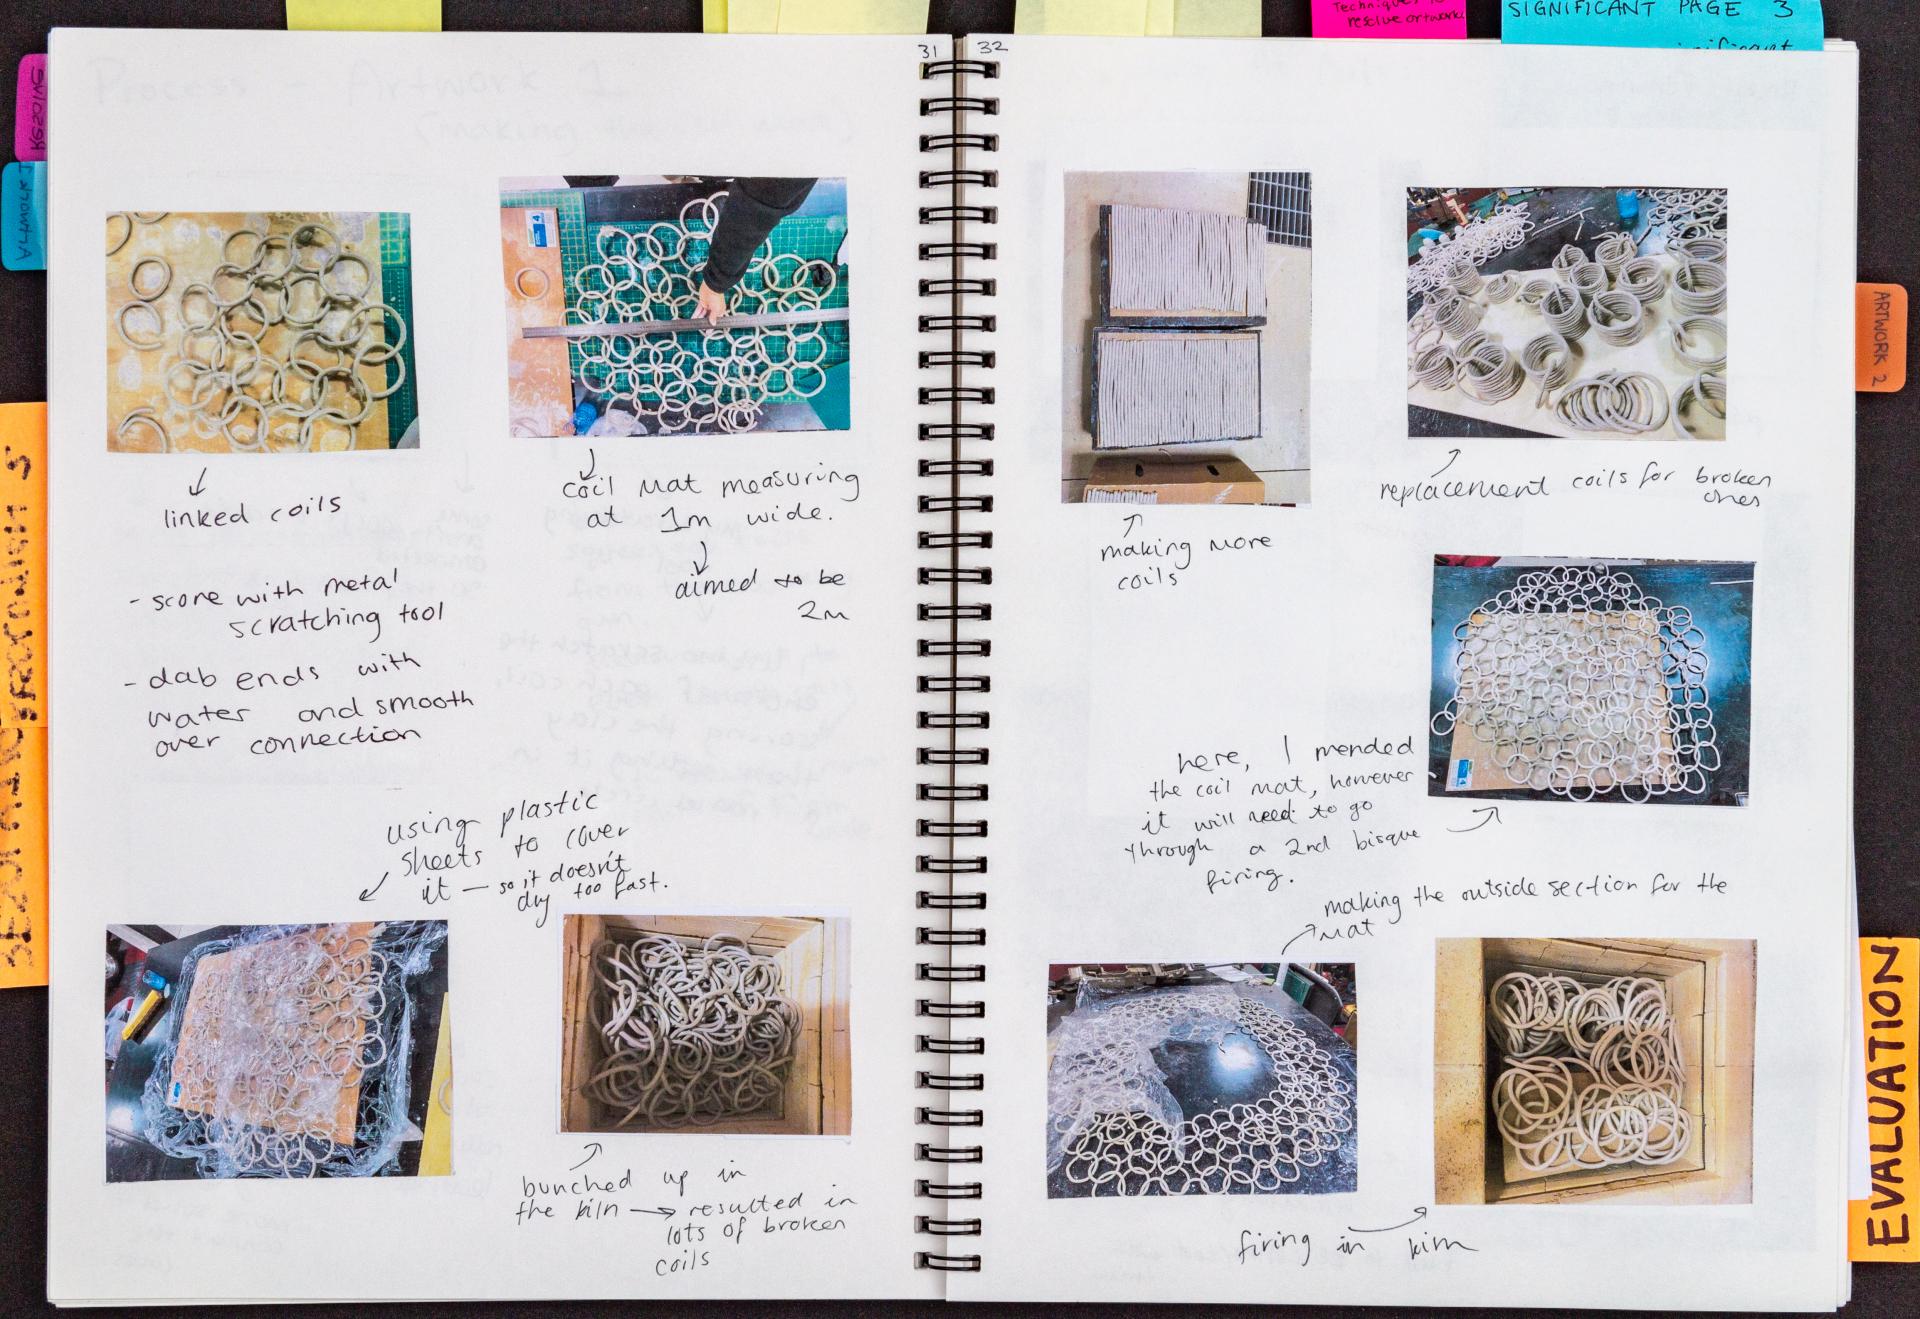 31
32
Techniques to
resolve artwork
SIGNIFICANT PAGE 3
linked coils
coil mat measuring
at 1m wide.
aimed to be
2m
- score with metal
scratching tool
- dab ends with
water and smooth
over connection
using plastic
sheets to cover
it — so it doesn't
dry too fast.
bunched up in
the kiln → resulted in
lots of broken
coils
making more
coils
replacement coils for broken
ones
here, I mended
the coil mat, however
it will need to go
through a 2nd bisque
firing.
making the outside section for the
mat
firing in kiln
ARTWORK 2
EVALUATION
ARTWORK 1
Process - Artwork 1